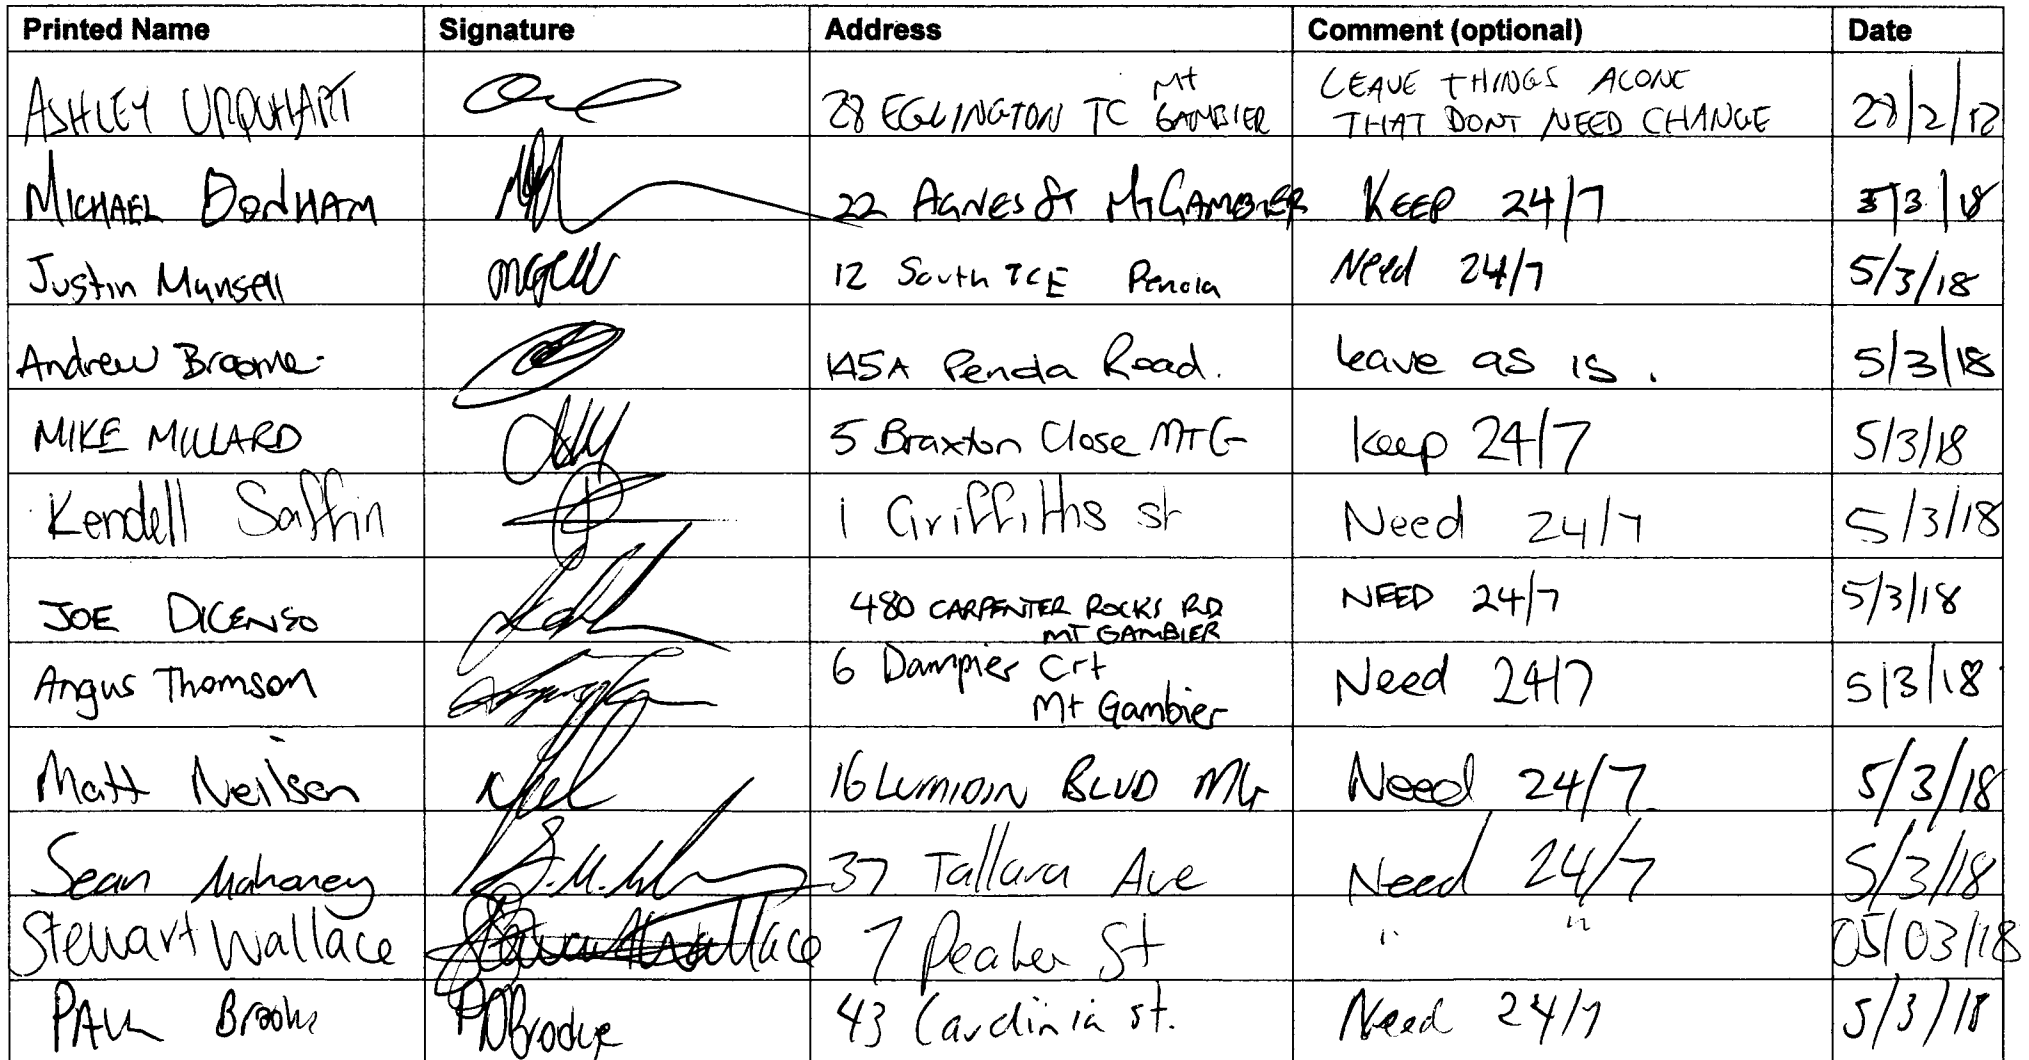 Printed Name Signature Address Comment (optional) Date
ASHLEY URQUHART 28 EGLINGTON TC MT GAMBIER LEAVE THINGS ALONE
THAT DONT NEED CHANGE 28/2/18
MICHAEL BONHAM 22 AGNES St MT GAMBIER KEEP 24/7 5/3/18
Justin Munsell 12 South TCE Penola Need 24/7 5/3/18
Andrew Broome 145A Penola Road. leave as is. 5/3/18
MIKE MILLARD 5 Braxton Close MT G keep 24/7 5/3/18
Kendell Saffin 1 Griffiths st Need 24/7 5/3/18
JOE DICENSO 480 CARPENTER ROCKS RD NEED 24/7 5/3/18
MT GAMBIER
Angus Thomson 6 Dampier Crt Need 24/7 5/3/18
Mt Gambier
Matt Neilsen 16 BLVD Need 24/7. 5/3/18
Sean Mahoney 37 Tallara Ave Need 24/7 5/3/18
Stewart Wallace Wallace 7 St " " 05/03/18
PAUL 43 Cardinia st. Need 24/7 5/3/18